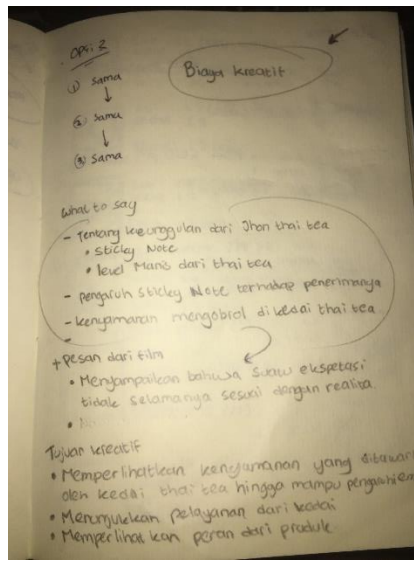 Opsi 2
① Sama
② Sama
③ Sama
Biaya kreatif
What to say
- Tentang keunggulan dari Jhon thai tea
• Sticky Note
• level Manis dari thai tea
- pengaruh Sticky Note terhadap penerimanya
- kenyamanan mengobrol di kedai thai tea
-
+ pesan dari film
• Menyampaikan bahwa suatu ekspetasi
tidak selamanya sesuai dengan realita.
•
Tujuan kreatif
• Memperlihatkan kenyamanan yang ditawar
oleh kedai thai tea hingga mampu
• Menunjukkan pelayanan dari kedai
• Memperlihatkan peran dari produk